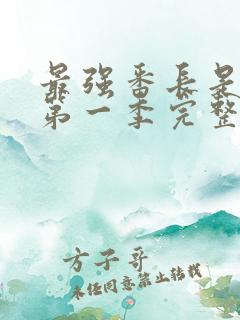 最强番长是
第一季完整
方子哥
未经同意禁止转载